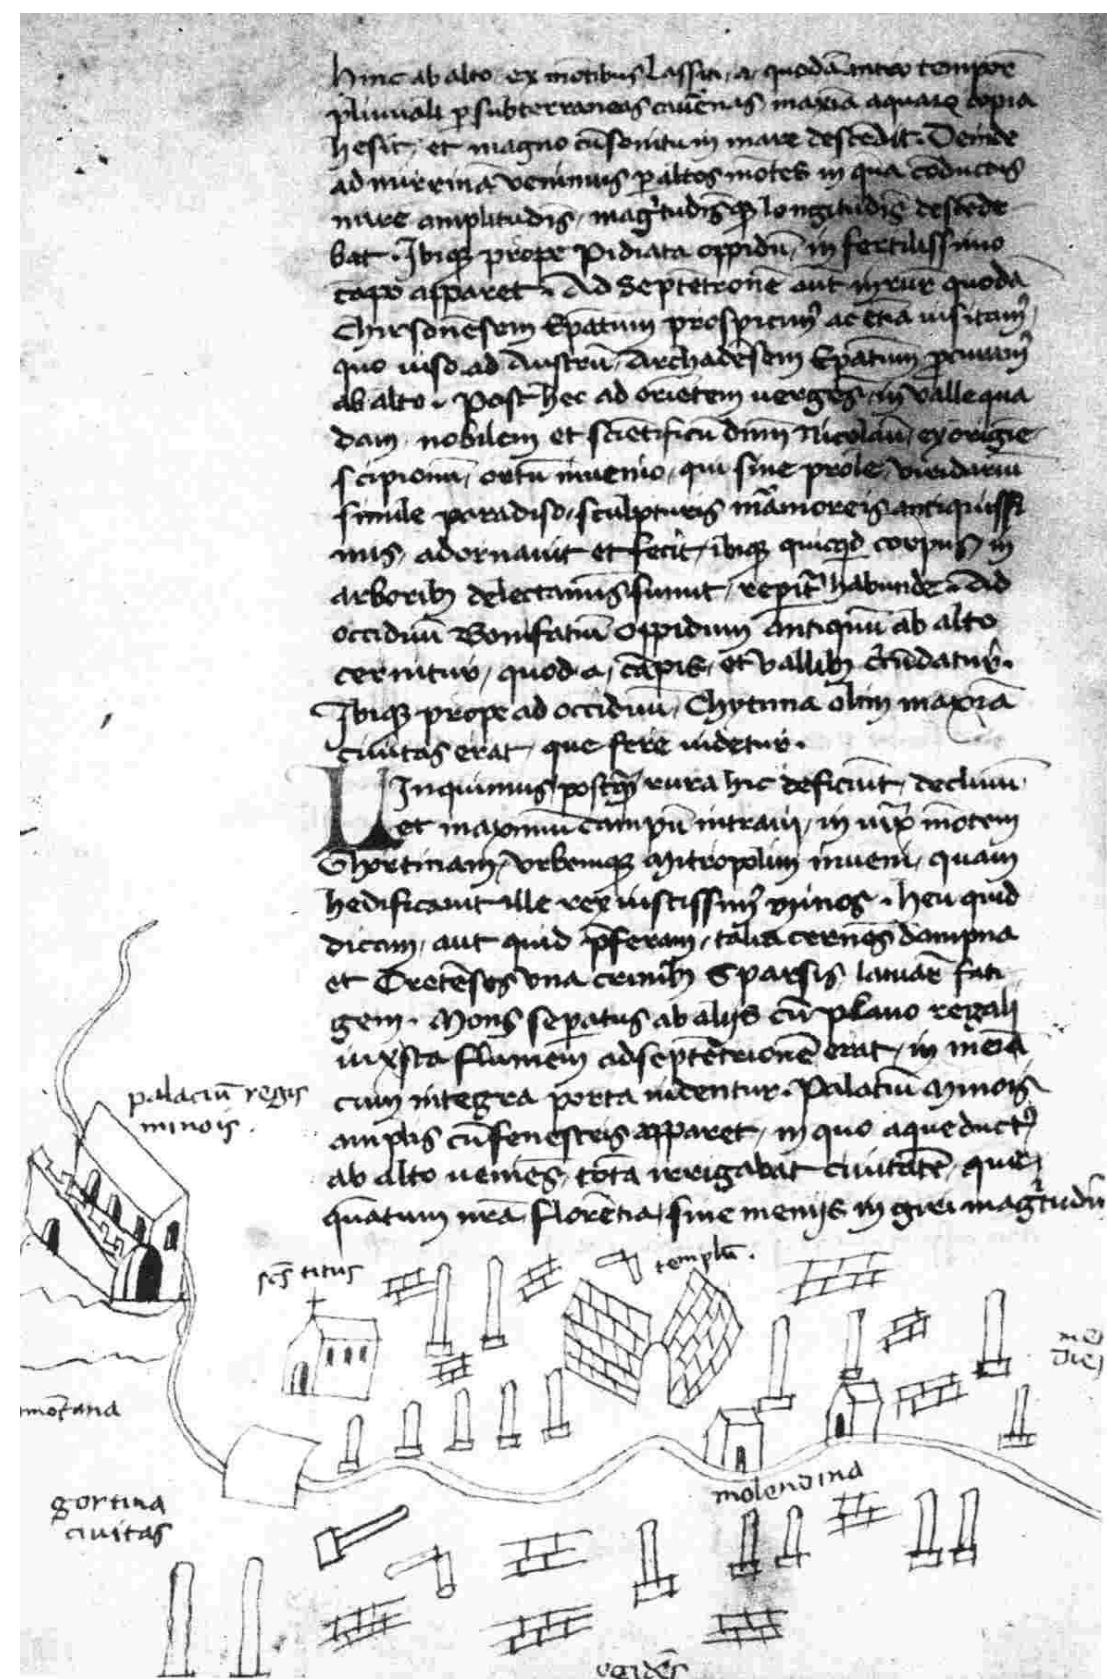 hinc ab alto ex mōtibus Lassiti, a, quodā antro tempore
pluuiali p subterraneas cauernas maxia aquarū copia
hesit, et magno cū sonitu in mare descēdit. Deinde
ad mirrinā venimus p altos mōtes in qua cōductus
mire amplitudis, magtudisqꝫ longitudis descēde
bat. Ibiqꝫ prope Pidiata oppidū, in fertilissimo
cāpo apparet. Ad Septētrionē aūt quodā
Chirsonēsem Epatum prospicimꝰ ac etiā uisitamꝰ,
quo uiso ad Austrū, Archadēsem Epatum
ab alto. Post hec ad oriētem uergēs, in valle qua
dam, nobilem et sciētificū dnm Nicolaū, ex origie
scipionū, ortū inuenio, qui sine prole, viridariū
simile paradiso, sculpturis mamoreis antiquissi
mis, adornauit et fecit, ibiqꝫ quicqd corpus in
arboribꝫ delectamīs sumit, reperit habunde. Ad
occiduū Bonifatiū oppidum antiquū ab alto
cernitur, quod, a, cāpis, et vallibꝫ circūdatur.
Ibiqꝫ prope ad occiduū, Chytina olim maxiā
ciuitas erat, que fere uidetur.
Linquimus postqꝫ rura hic deficiūt, decliuū
et maximū campū intraui, in iux mōtem
Ghortinam, vrbemqꝫ mitropolim inueni, quam
hedificauit ille rex iustissimꝰ minos. heu quid
dicam, aut quid pferam, talia cernēs dampna
et Cretēses vna crinibꝫ sparsis, latiare fati
gem. Mons sepatus ab aliis cū plano regali
iuxsta flumem ad septētrionē erat, in
cum integra porta uidentur. Palatiū minois
amplis cū fenestris apparet, in quo aqueductꝰ
ab alto ueniēs, totā irrigabat ciuitatē, que
quātum nrā Florētia, sine meniis in girei magtudī
palaciū regis
minois.
scs titus
templū.
me
diei
mōtana
molendina
gortina
ciuitas